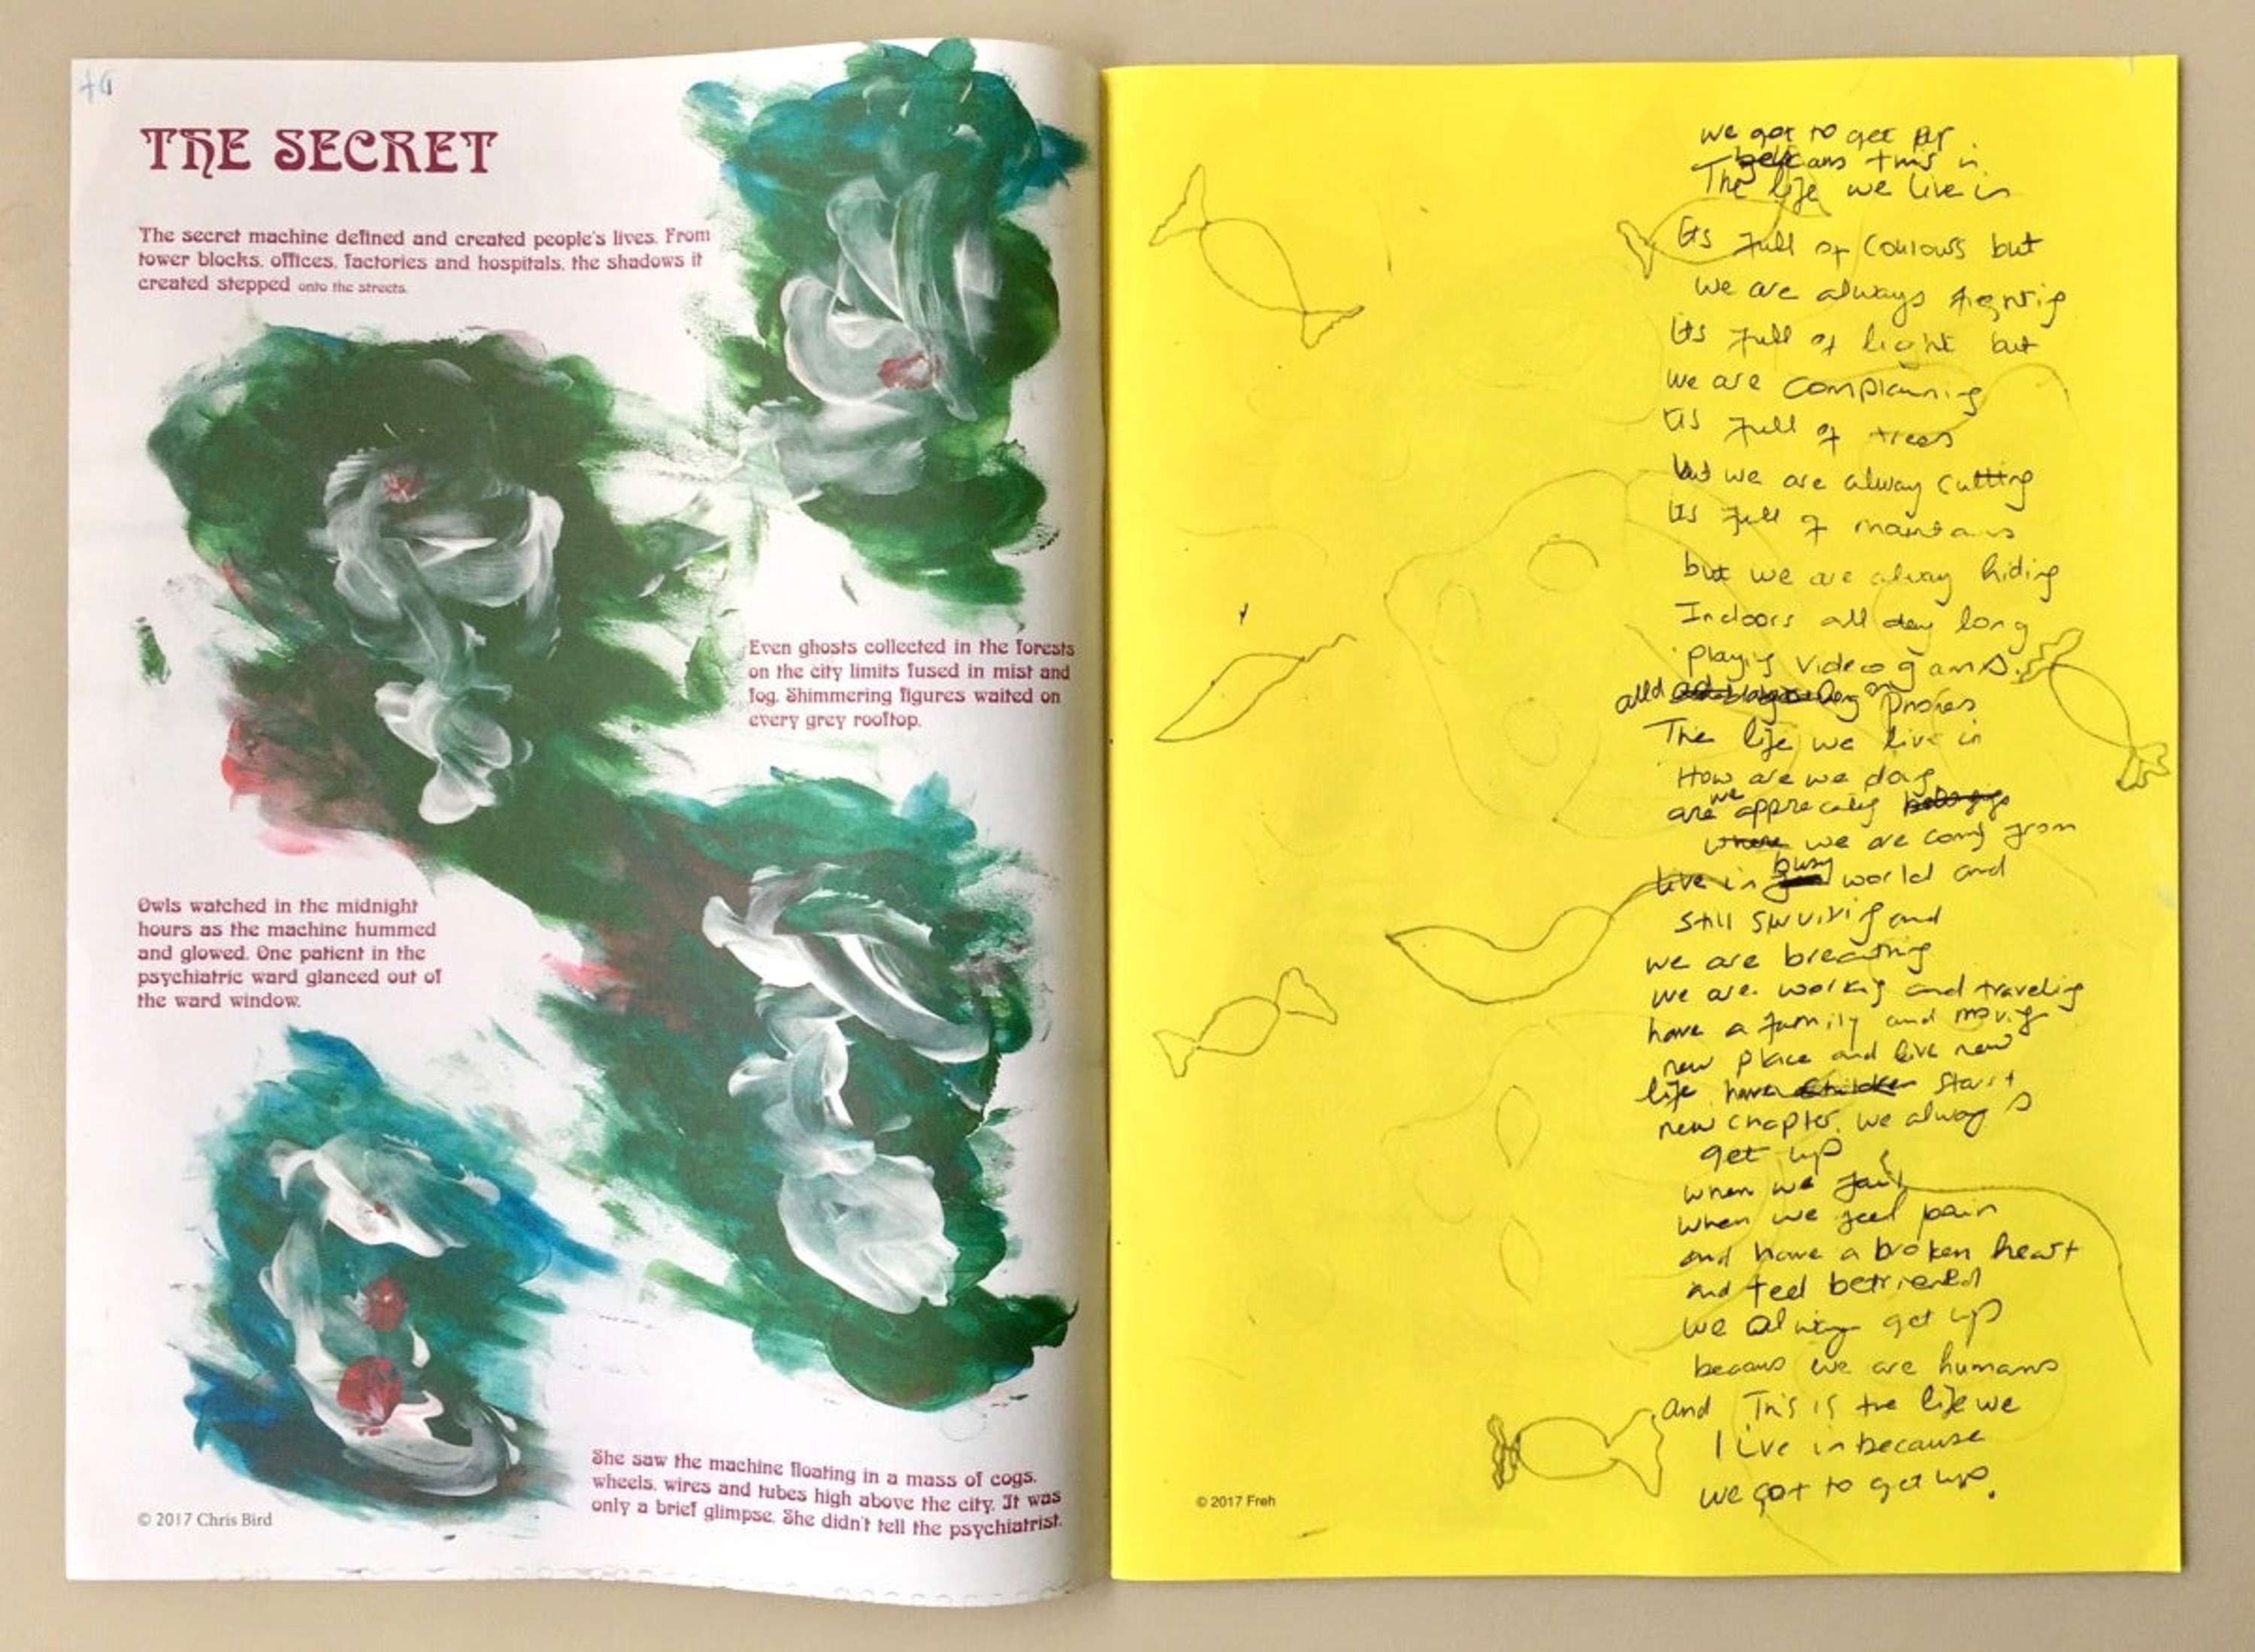 THE SECRET
The secret machine defined and created people's lives. From
tower blocks, offices, factories and hospitals, the shadows it
created stepped onto the streets.
Even ghosts collected in the forests
on the city limits fused in mist and
fog. Shimmering figures waited on
every grey rooftop.
Owls watched in the midnight
hours as the machine hummed
and glowed. One patient in the
psychiatric ward glanced out of
the ward window.
She saw the machine floating in a mass of cogs,
wheels, wires and tubes high above the city. It was
only a brief glimpse. She didn't tell the psychiatrist.
© 2017 Chris Bird
we got to get
this is
The life we live in
Its full of coulours but
we are always
Its full of light but
we are
Its full of trees
but we are alway cutting
Its full of
but we are alway hiding
Indoors all day long
videogams.
The life we live in
How are we
are we
we are from
live in busy world and
still and
we are
we are and
have a family and
new place and live new
life have start
new chapter. we always
get up
when we fail
when we feel pain
and have a broken heart
and feel
we get up
becaus we are humans
and This is the life we
live in because
we got to get up.
© 2017 Freh